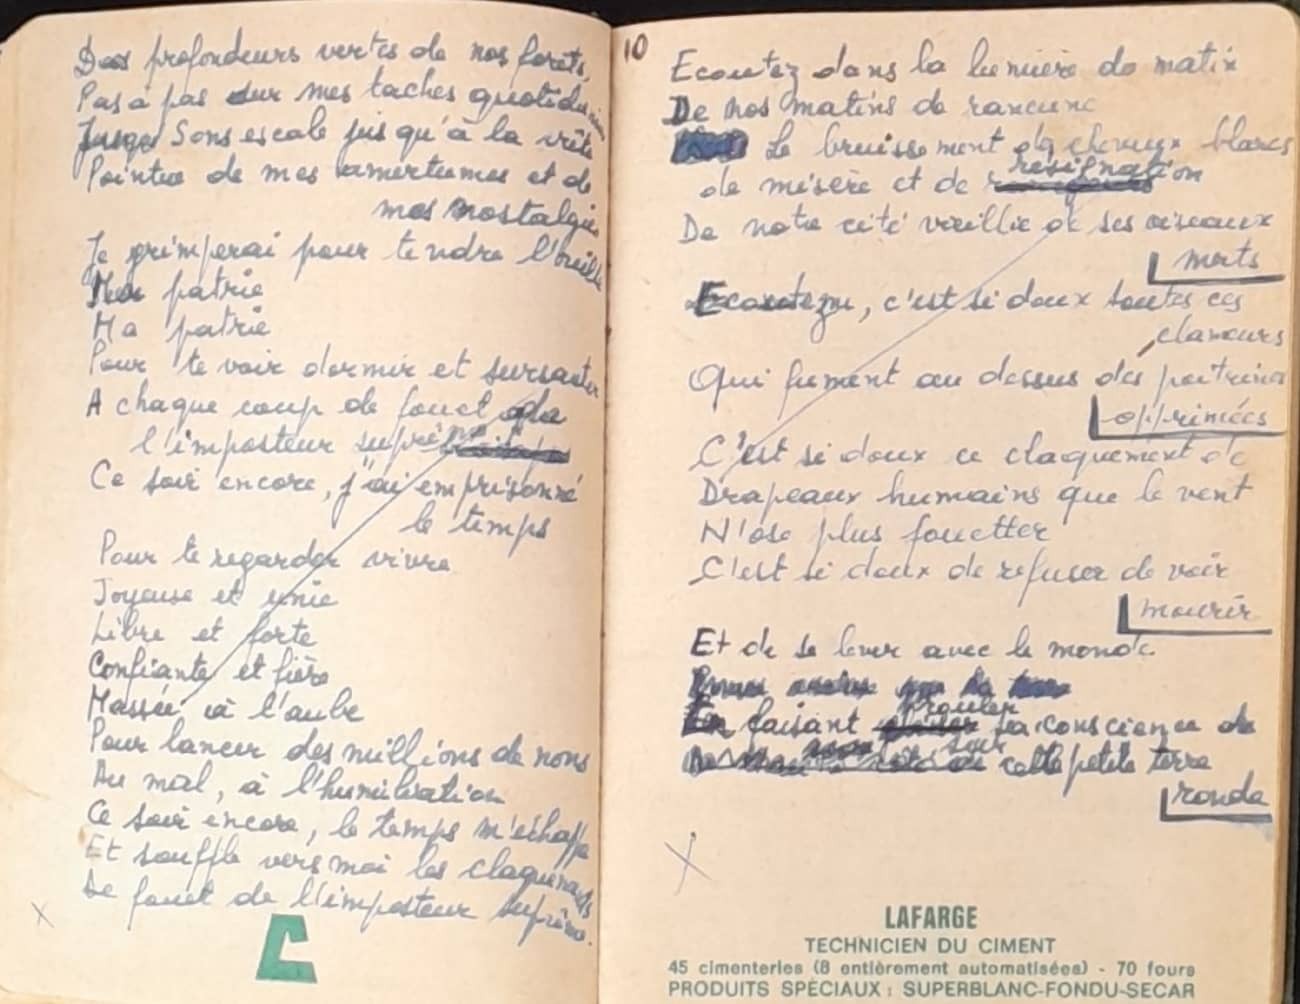 Des profondeurs vertes de nos forêts,
Pas à pas sur mes taches quotidiennes
Sans escale jusqu'à la vôte
Pointue de mes amertumes et de
mes nostalgies
Je grimperai pour tendre l'oreille
Mon patrie
Ma patrie
Pour te voir dormir et sursauter
A chaque coup de fouet de
l'imposteur suprême
Ce soir encore, j'ai emprisonné
le temps
Pour te regarder vivre
Joyeuse et unie
Libre et forte
Confiante et fière
Massée à l'aube
Pour lancer des millions de nons
Au mal, à l'humiliation
Ce soir encore, le temps m'échappe
Et souffle vers moi les claquements
De fouet de l'imposteur suprême.
x
C
10
Ecoutez dans la lumière du matin
De nos matins de rancune
Le bruissement de cheveux blancs
de misère et de résignation
De notre cité vieillie et ses oiseaux
morts
Ecoutez, c'est si doux toutes ces
clameurs
Qui fument au dessus des poitrines
opprimées
C'est si doux ce claquement de
Drapeaux humains que le vent
N'ose plus fouetter
C'est si doux de refuser de voir
mourir
Et de se lever avec le monde
En faisant sa conscience de
sur cette petite terre
ronde
x
LAFARGE
TECHNICIEN DU CIMENT
45 cimenteries (8 entièrement automatisées) - 70 fours
PRODUITS SPÉCIAUX : SUPERBLANC-FONDU-SECAR